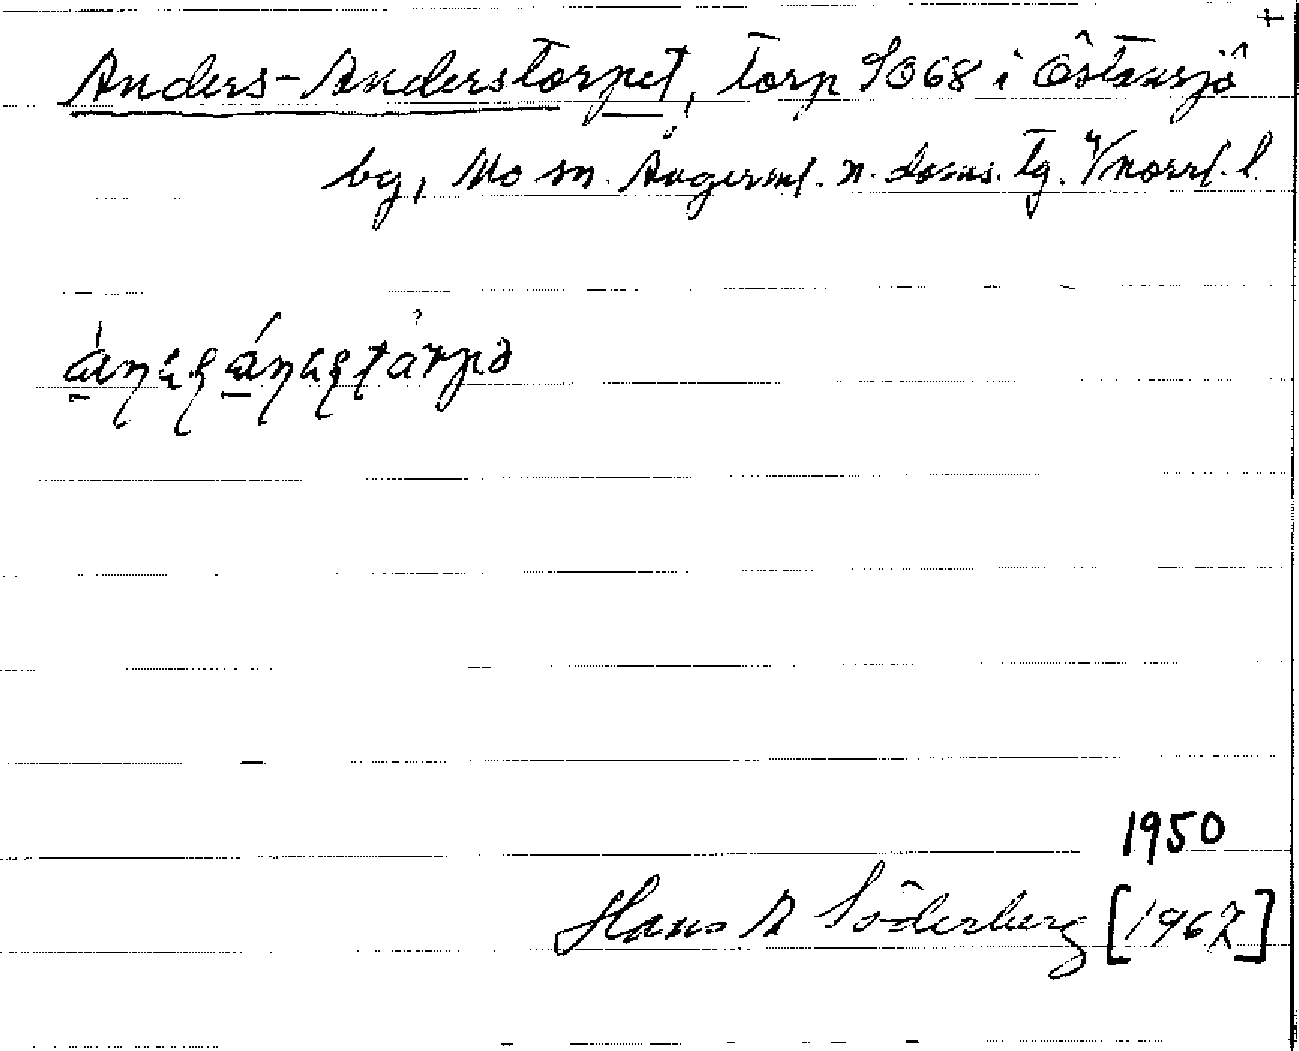 Anders-Anderstorpet, torp SO68 i Östansjö
by, Mo sn. Ångerml. n. doms. tg. V/norrl. l.
1950
Hans A Söderberg [1967]